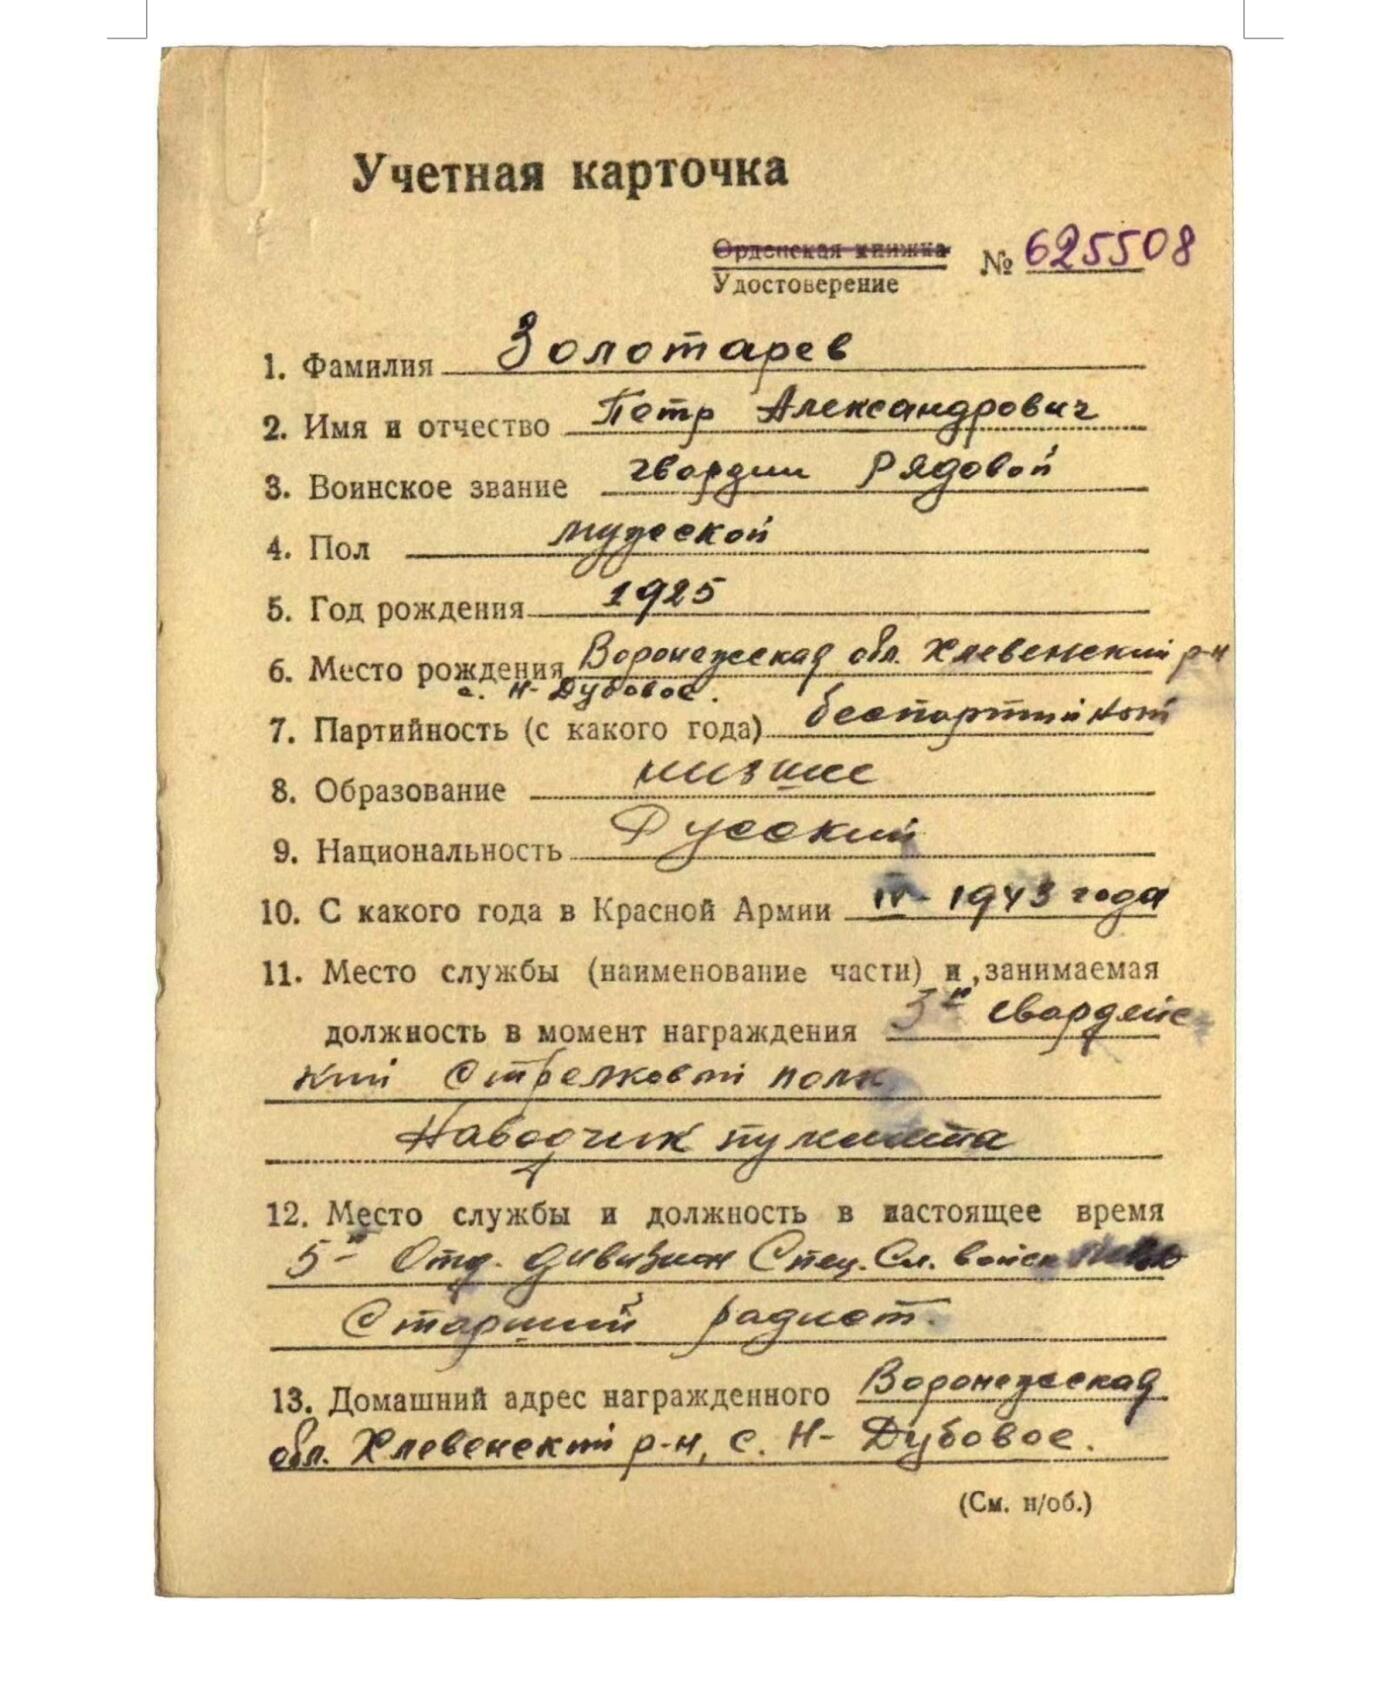 Учетная карточка
Орденская книжка
Удостоверение № 625508
1. Фамилия Золотарев
2. Имя и отчество Петр Александрович
3. Воинское звание гвардии Рядовой
4. Пол мужской
5. Год рождения 1925
6. Место рождения Воронежская обл. Хлевенский р-н
с. Н-Дубовое.
7. Партийность (с какого года) беспартийный
8. Образование низшее
9. Национальность Русский
10. С какого года в Красной Армии 1943 года
11. Место службы (наименование части) и занимаемая
должность в момент награждения 3й гвардейс-
кий Стрелковый полк
Наводчик пулемета
12. Место службы и должность в настоящее время
5й Отд. дивизион Спец. Сл. войск
Старший радист.
13. Домашний адрес награжденного Воронежская
обл. Хлевенский р-н, с. Н-Дубовое.
(См. н/об.)